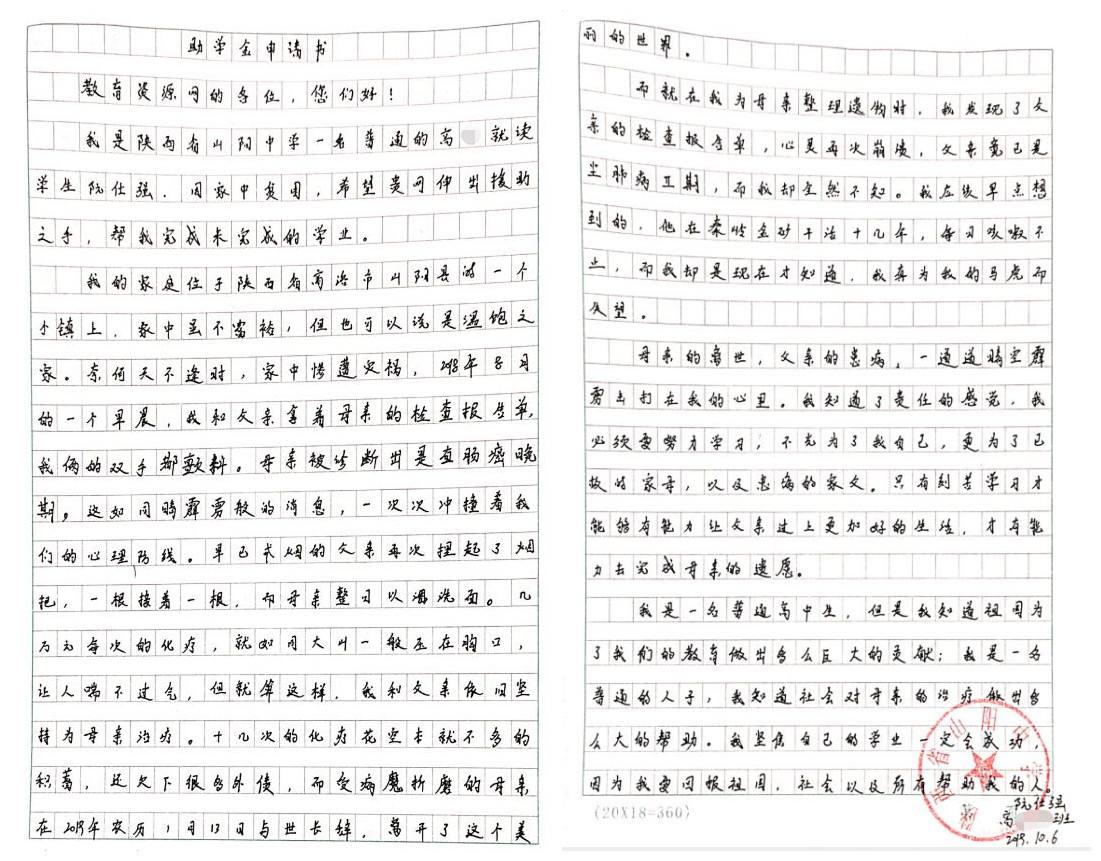 助学金申请书
教育资源网的各位，您们好！
我是陕西省山阳中学一名普通的高 就读
学生阮仕强．因家中贫困，希望贵网伸出援助
之手，帮我完成未完成的学业。
我的家庭位于陕西省商洛市山阳县的一个
小镇上．家中虽不富裕，但也可以说是温饱之
家。奈何天不逢时，家中惨遭灾祸，2018年8月
的一个早晨，我和父亲拿着母亲的检查报告单，
我俩的双手都颤抖。母亲被诊断出是直肠癌晚
期。这如同晴霹雳般的消息，一次次冲撞着我
们的心理防线。早已术烟的父亲再次捏起了烟
把，一根接着一根，而母亲整日以泪洗面。几
万元每次的化疗，就如同大山一般压在胸口，
让人喘不过气，但就算这样，我和父亲依旧坚
持为母亲治疗。十几次的化疗花空本就不多的
积蓄，还欠下很多外债，而受病魔折磨的母亲
在2019年农历1月13日与世长辞，离开了这个美
丽的世界。
而就在我为母亲整理遗物时，我发现了父
亲的检查报告单，心灵再次崩溃，父亲竟已是
尘肺病 期，而我却全然不知。我应该早点想
到的，他在秦岭金矿干活十几年，每日咳嗽不
止，而我却是现在才知道，我真为我的马虎而
失望。
母亲的离世，父亲的患病，一道道晴空霹
雳击打在我的心里。我知道了责任的感觉，我
必须要努力学习，不光为了我自己，更为了已
故的家母，以及患病的家父。只有刻苦学习才
能够有能力让父亲过上更加好的生活，才有能
力去完成母亲的遗愿。
我是一名普通高中生，但是我知道祖国为
了我们的教育做出多么巨大的贡献；我是一名
普通的人子，我知道社会对母亲的治疗做出多
么大的帮助。我坚信自己的学业一定会成功，
因为我要回报祖国，社会以及所有帮助我的人。
(20X18=360)
阮仕强
高 班
2019.10.6